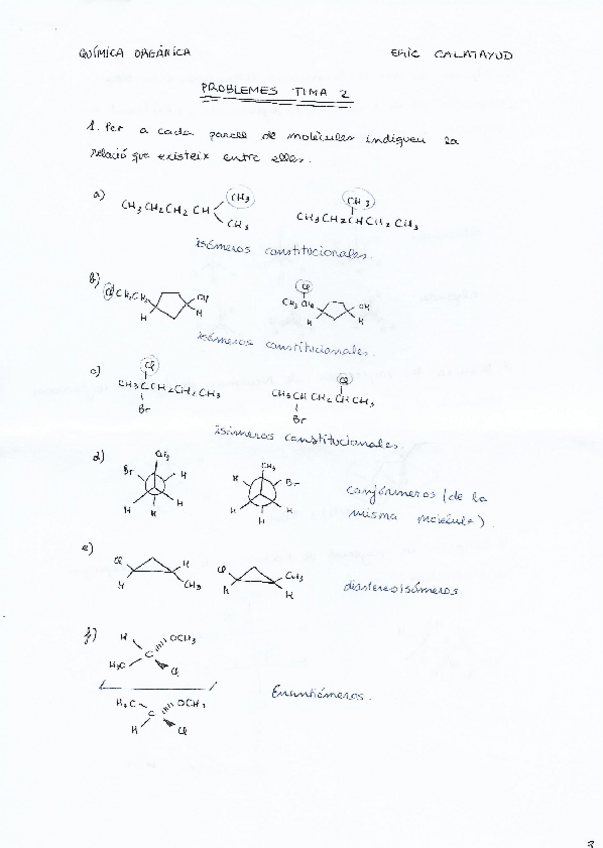 QUÍMICA ORGÀNICA ERIC CALATAYUD
PROBLEMES TEMA 2
1. Per a cada parell de molècules indiqueu la
relació que existeix entre elles.
a) CH3CH2CH2CH CH3 CH3 CH3 CH3CH2CHCH2CH3
isómeros constitucionales.
b) Cl CH2CH2 OH H H Cl CH3CH OH H H
isómeros constitucionales.
c) Cl CH3CCH2CH2CH3 Br Cl CH3CHCH2CHCH3 Br
isómeros constitucionales
d) CH3 Br H H H H CH3 H Br H H H
confórmeros (de la
misma molécula).
e) Cl H H CH3 Cl H CH3 H
diastereoisómeros
f) H OCH3 C H3C Cl
H3C OCH3 C H Cl
Enantiómeros.